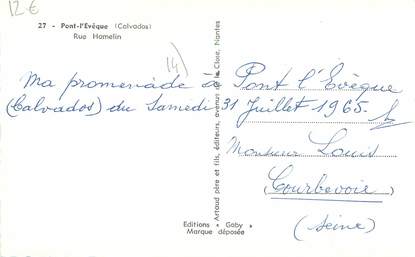 12 €
27 - Pont-l'Evêque (Calvados)
Rue Hamelin
14)
Ma promenade à Pont l'Evêque
(Calvados) du Samedi 31 Juillet 1965.
Monsieur Louis
Courbevoie
(Seine)
Artaud père et fils, éditeurs, avenue de la Close, Nantes
Editions « Gaby »
Marque déposée